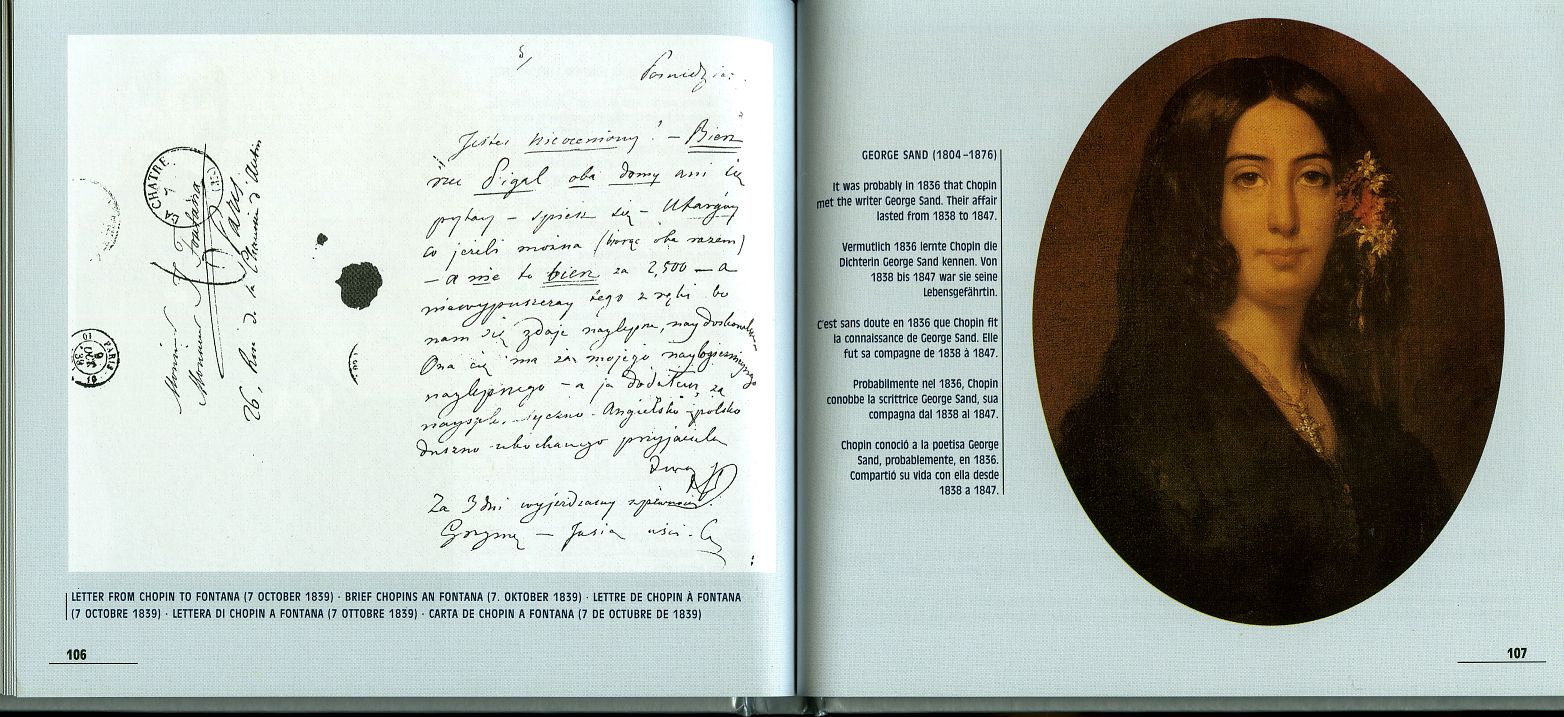 Jesteś nieoceniony! – Bierz
rue Pigal oba domy ani się
pytaj – spiesz się – Utarguj
co jeżeli można (biorąc oba razem)
– a nie to bierz za 2,500 – a
niewypuszczaj tego z ręki bo
nam się zdaje najlepsze, najdoskonalsze
Ona cię ma za mojego najlogiczniejszego
najlepszego – a ja dodałem za
Angielsko-polsko
duszno-ukochanego przyjaciela
Za 3 dni wyjeżdżamy z pewnością
Grzymę – Jasia uści.
LA CHATRE
Monsieur J. Fontana
Paris
26, de la Chaussée d'Antin
PARIS
9
OCT
39
LETTER FROM CHOPIN TO FONTANA (7 OCTOBER 1839) · BRIEF CHOPINS AN FONTANA (7. OKTOBER 1839) · LETTRE DE CHOPIN À FONTANA
(7 OCTOBRE 1839) · LETTERA DI CHOPIN A FONTANA (7 OTTOBRE 1839) · CARTA DE CHOPIN A FONTANA (7 DE OCTUBRE DE 1839)
106
GEORGE SAND (1804–1876)
It was probably in 1836 that Chopin
met the writer George Sand. Their affair
lasted from 1838 to 1847.
Vermutlich 1836 lernte Chopin die
Dichterin George Sand kennen. Von
1838 bis 1847 war sie seine
Lebensgefährtin.
C'est sans doute en 1836 que Chopin fit
la connaissance de George Sand. Elle
fut sa compagne de 1838 à 1847.
Probabilmente nel 1836, Chopin
conobbe la scrittrice George Sand, sua
compagna dal 1838 al 1847.
Chopin conoció a la poetisa George
Sand, probablemente, en 1836.
Compartió su vida con ella desde
1838 a 1847.
107